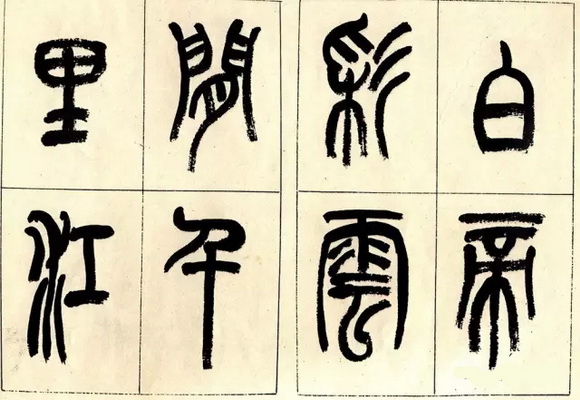 白帝
彩雲
閒千
里江